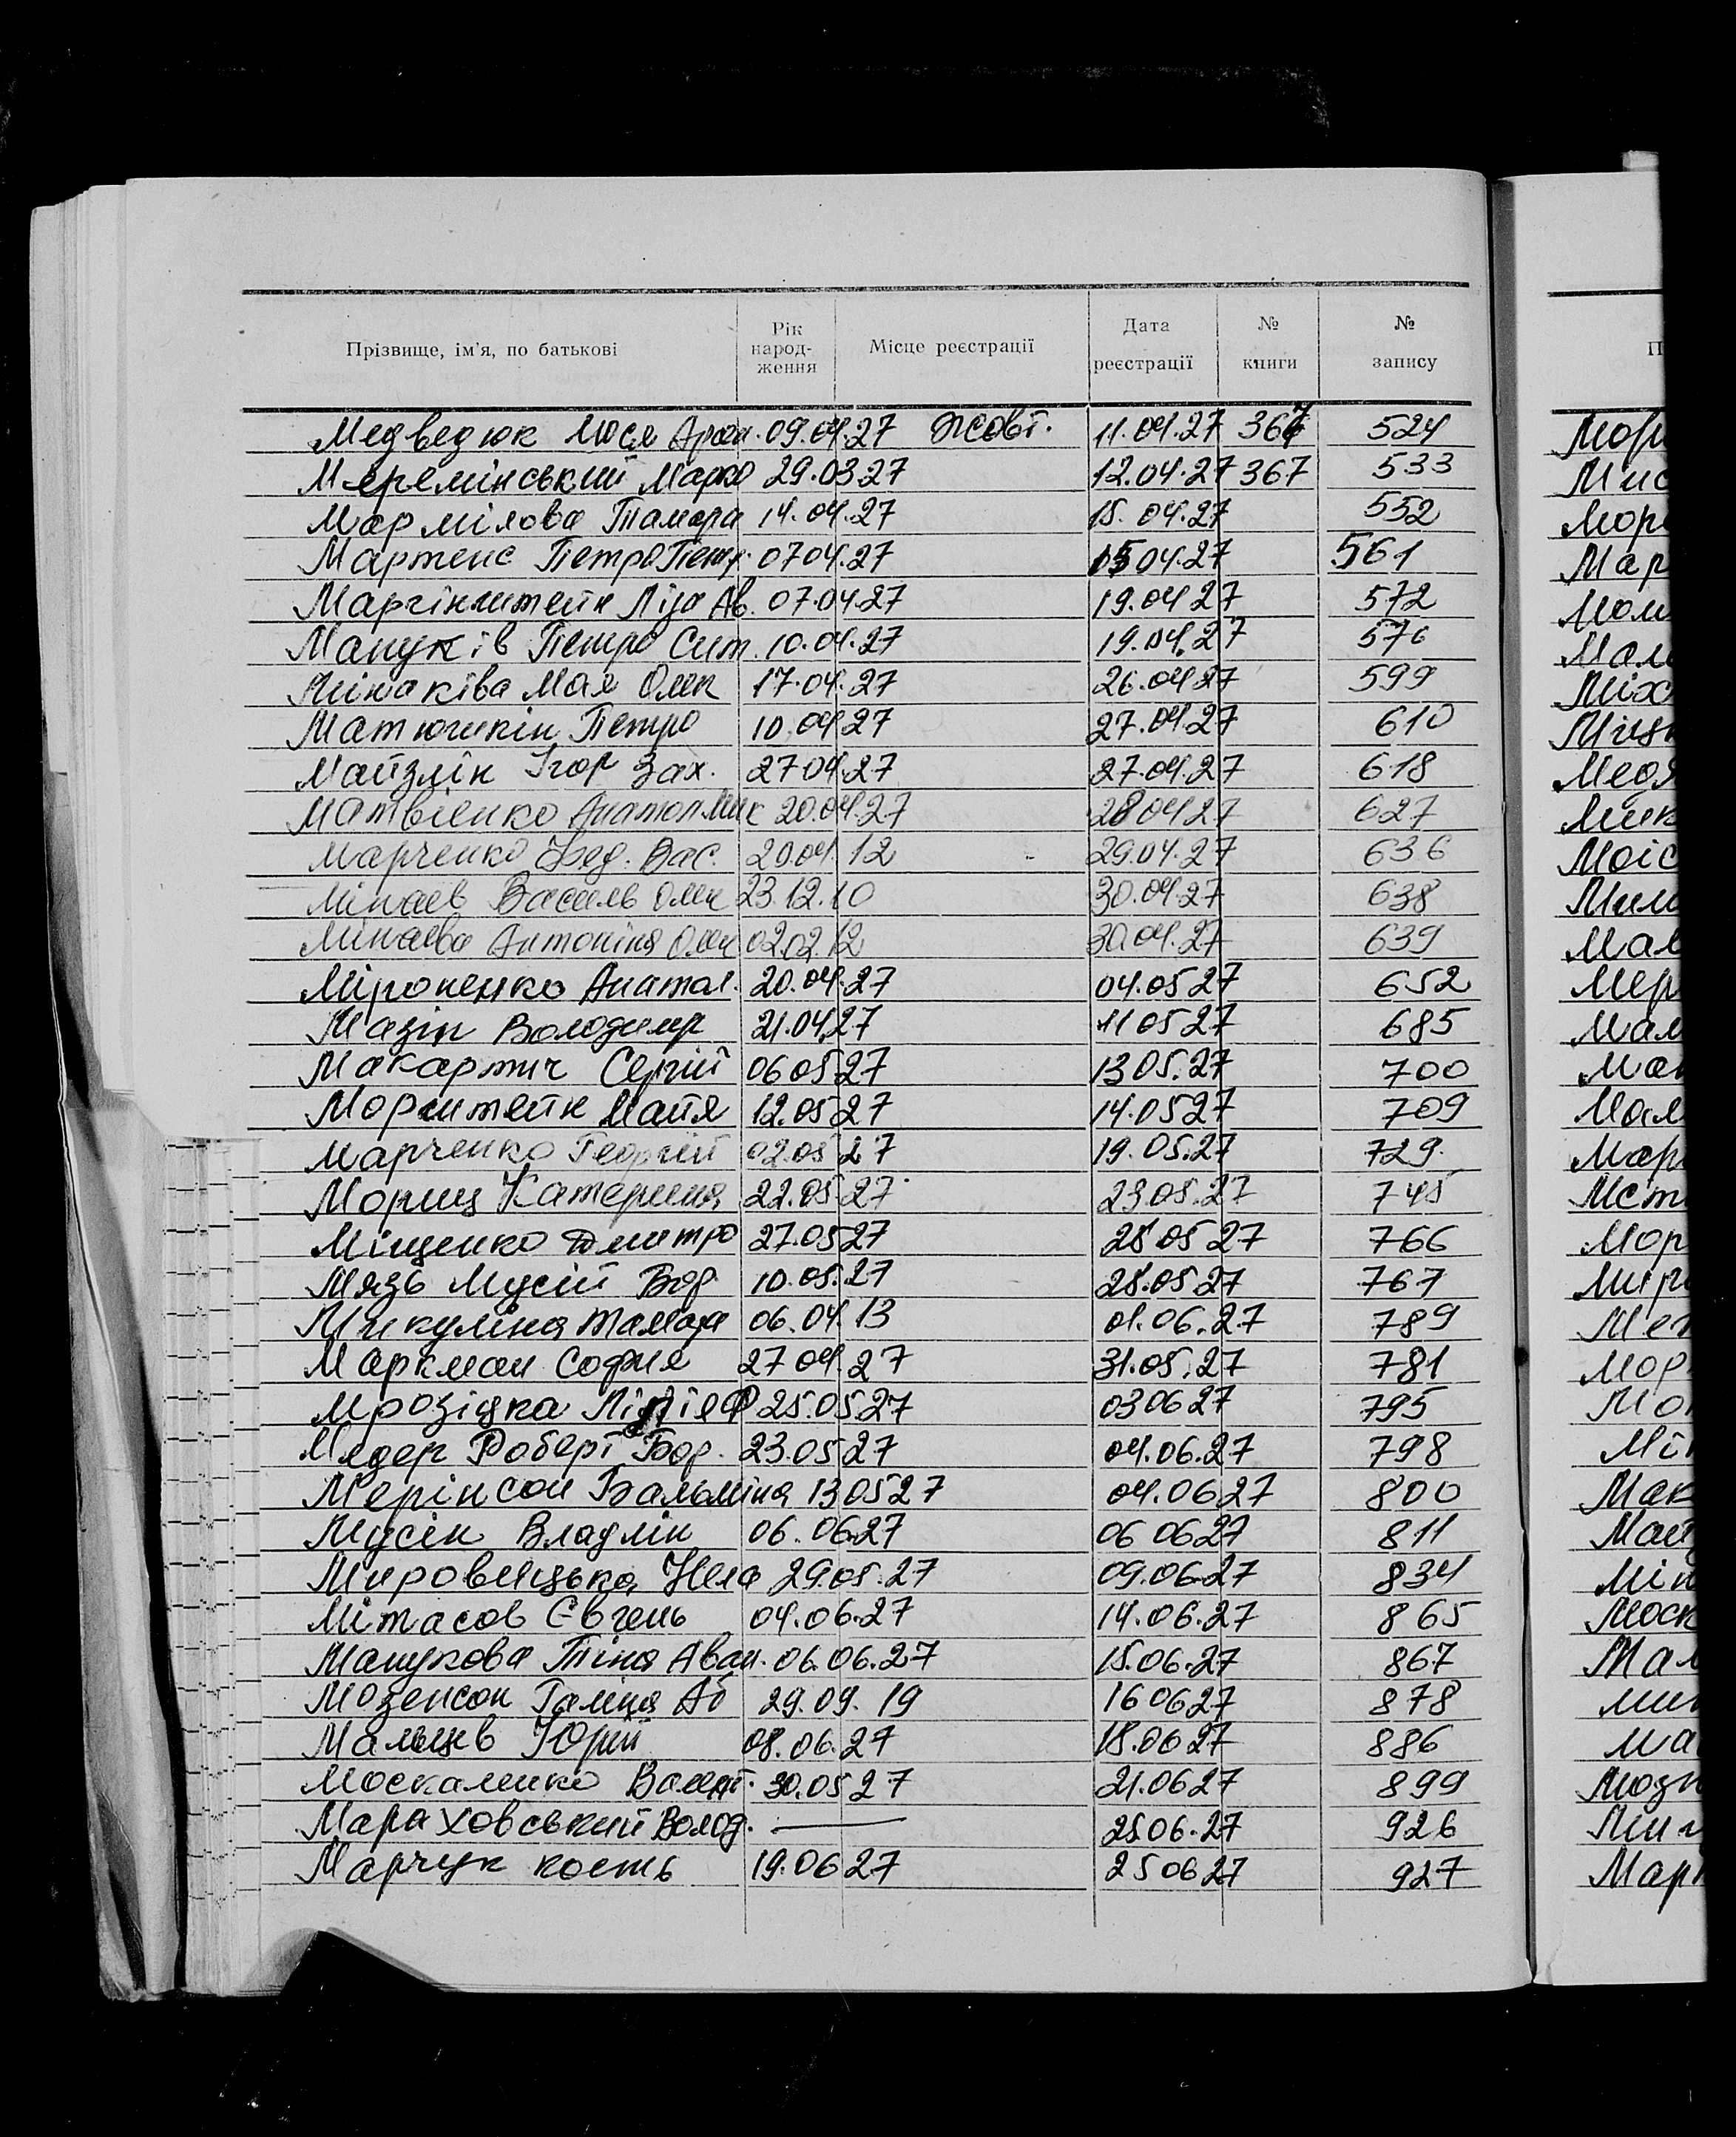 Прізвище, ім'я, по батькові Рік народ-ження Місце реєстрації Дата реєстрації № книги № запису
Медведюк Люся Арон. 09.04.27 Жовт. 11.04.27 367 524
Меремінський Марко 29.03.27 12.04.27 367 533
Мармілова Тамара 14.04.27 15.04.27 552
Мартенс Петро Петр. 07 04.27 15 04.27 561
Ліза Ав. 07.04.27 19.04 27 572
Мануків Петро 10.04.27 19.04.27 576
Мінаківа Мая Олек 17.04.27 26.04 27 599
Матюшкін Петро 10.04 27 27.04.27 610
Майзлік Ігор Зах. 27 04.27 27.04.27 618
Матвієнко Анатол Мик 20.04.27 28 04 27 627
Марченко Фед. Вас. 20.04.12 29.04.27 636
Мінаєв Василь Олек 23.12.10 30.04.27 638
Мінаєва Антоніна Олек 02.02.12 30.04.27 639
Міроненко Анатол. 20.04.27 04.05 27 652
Мазін Володимир 21.04.27 11 05 27 685
Макартич Сергій 06 05 27 13 05.27 700
Морштейн Майя 12.05 27 14.05 27 709
Марченко Георгій 02.05 27 19.05.27 729.
Мориц Катерина 22.05.27 23.05.27 745
Міщенко Дмитро 27.05 27 28 05 27 766
Мязь Мусій Вод 10.05.27 28.05.27 767
Микуліна Тамара 06.04.13 01.06.27 789
Маркман София 27 04.27 31.05.27 781
Мрозіцка Лідія Ф 25.05.27 03 06 27 795
Мядер Роберт Бор. 23.05 27 04.06.27 798
Мерінсон Вальміна 13 05 27 04.06 27 800
Мусін Владлін 06.06 27 06 06 27 811
Мировицька Нела 29.05.27 09.06.27 834
Мітасов Євгень 04.06.27 14.06.27 865
Манукова Тіна Аван. 06.06.27 15.06.27 867
Мозенсон Галіна Аб 29.09.19 16 06 27 878
Мальцев Юрій 08.06.27 18.06 27 886
Москаленко Валент. 30.05 27 21.06 27 899
Мараховський Волод. — 25 06.27 926
Марчук Кость 19.06 27 25 06 27 927